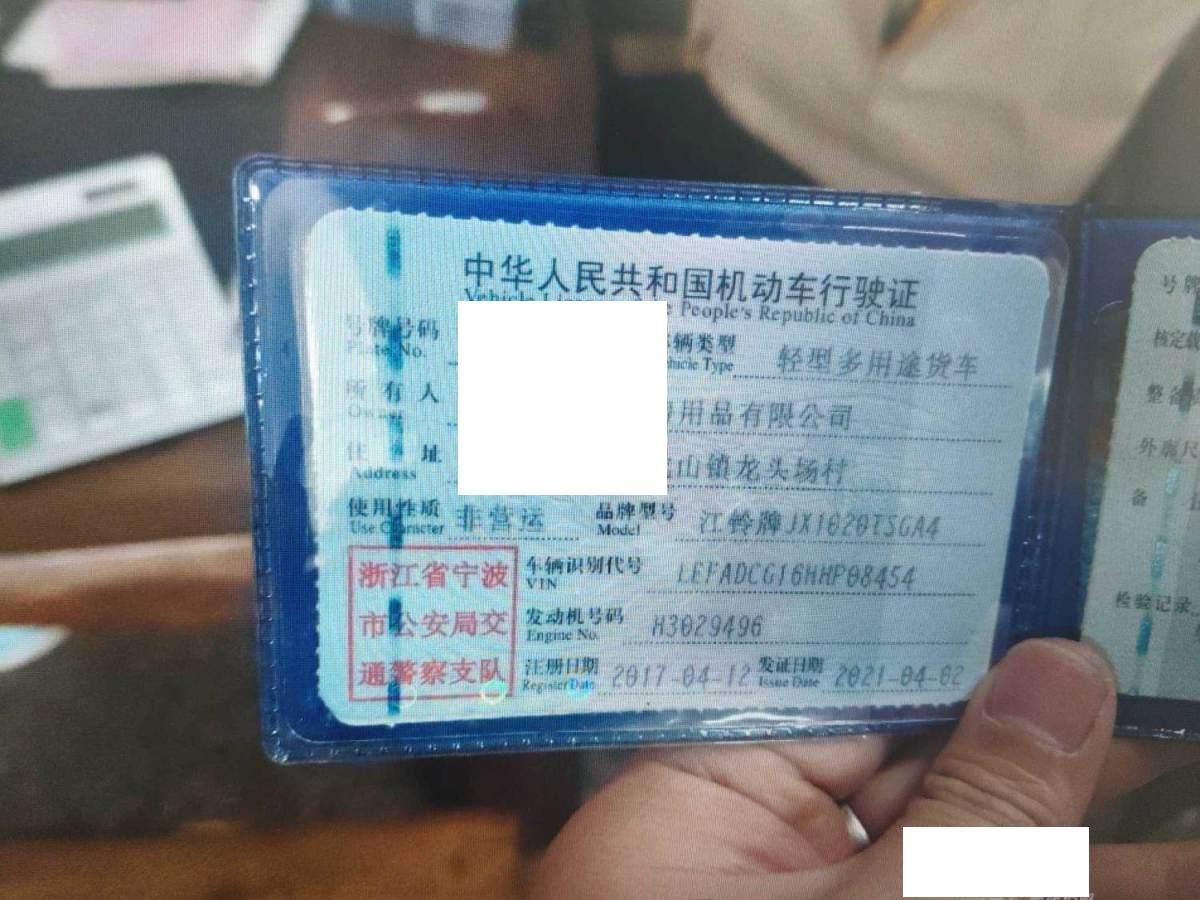 中华人民共和国机动车行驶证
People's Republic of China
号牌号码 车辆类型 轻型多用途货车
Plate No. Vehicle Type
所有人 用品有限公司
Owner
住址 山镇龙头场村
Address
使用性质 非营运 品牌型号 江铃牌JX1020TSGA4
Use Character Model
浙江省宁波 车辆识别代号 LEFADCG16HHP08454
VIN
市公安局交 发动机号码 H3029496
Engine No.
通警察支队 注册日期 2017-04-12 发证日期 2021-04-02
Register Date Issue Date
号牌
核定载
整备
外廓尺
备
检验记录